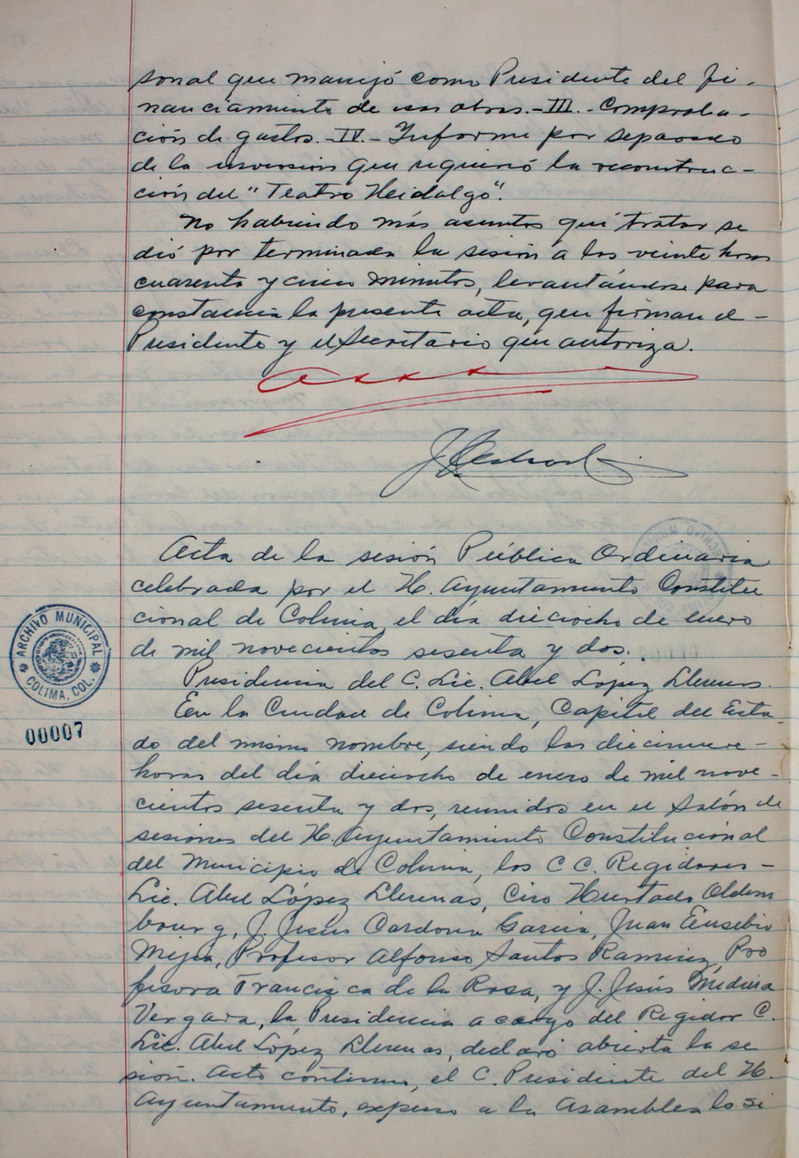 sonal que manejó como Presidente del fi-
nanciamiento de esas obras.-III.-Comproba-
ción de gastos.-IV.-Informe por separado
de la inversión que requirió la reconstruc-
ción del "Teatro Heidalgo".
No habiendo más asuntos que tratar se
dió por terminada la sesión a las veinte horas
cuarenta y cinco minutos, levantándose para
constancia la presente acta, que firman el-
Presidente y el Secretario que autoriza.
Acta de la sesión Pública Ordinaria
celebrada por el H. Ayuntamiento Constitu
cional de Colima, el día dieciocho de enero
de mil novecientos sesenta y dos.
Presidencia del C. Lic. Abel López Llerenas.
En la Ciudad de Colima, Capital del Esta-
do del mismo nombre, siendo las diecinueve-
horas del día dieciocho de enero de mil nove-
cientos sesenta y dos, reunidos en el Salón de
sesiones del H. Ayuntamiento Constitucional
del Municipio de Colima, los C C. Regidores-
Lic. Abel López Llerenas, Ciro Hurtado Oldem
bourg, J. Jesús Cardona García, Juan Eusebio
Mejía, Profesor Alfonso Santos Ramírez, Pro
fesora Francisca de la Rosa, y J. Jesús Medina
Vergara, la Presidencia a cargo del Regidor C.
Lic. Abel López Llerenas, declaró abierta la se
sión. Acto continuo, el C. Presidente del H.
Ayuntamiento, expuso a la Asamblea lo si
ARCHIVO MUNICIPAL
COLIMA, COL.
00007